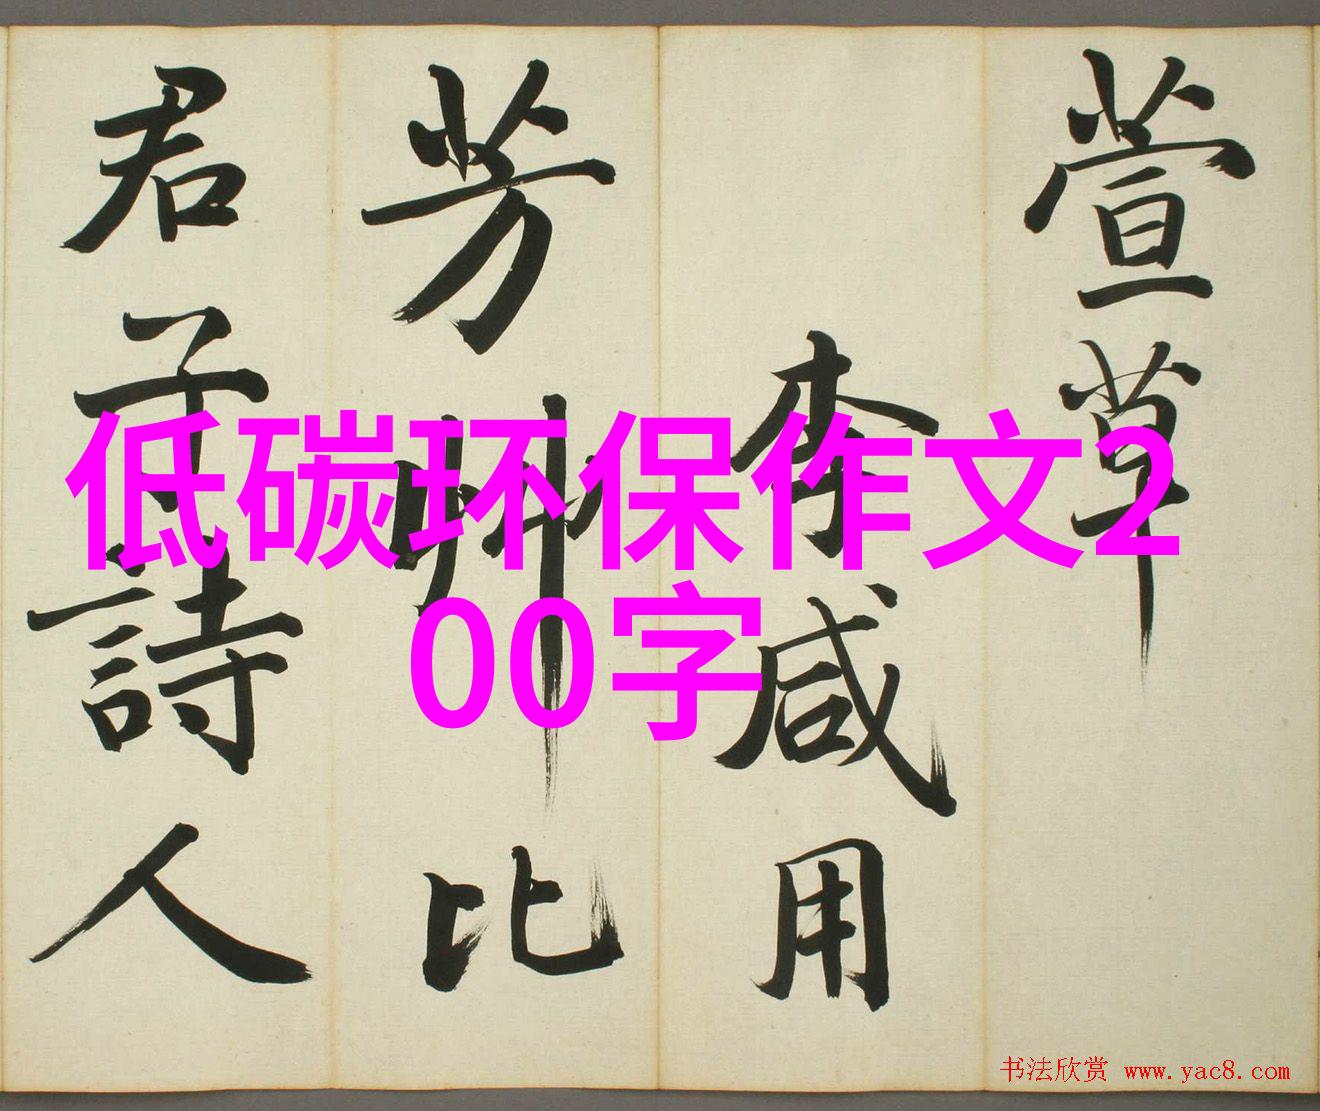 萱草
李咸用
芳艸比
君子詩人
低碳环保作文2
00字
书法欣赏 www.yac8.com